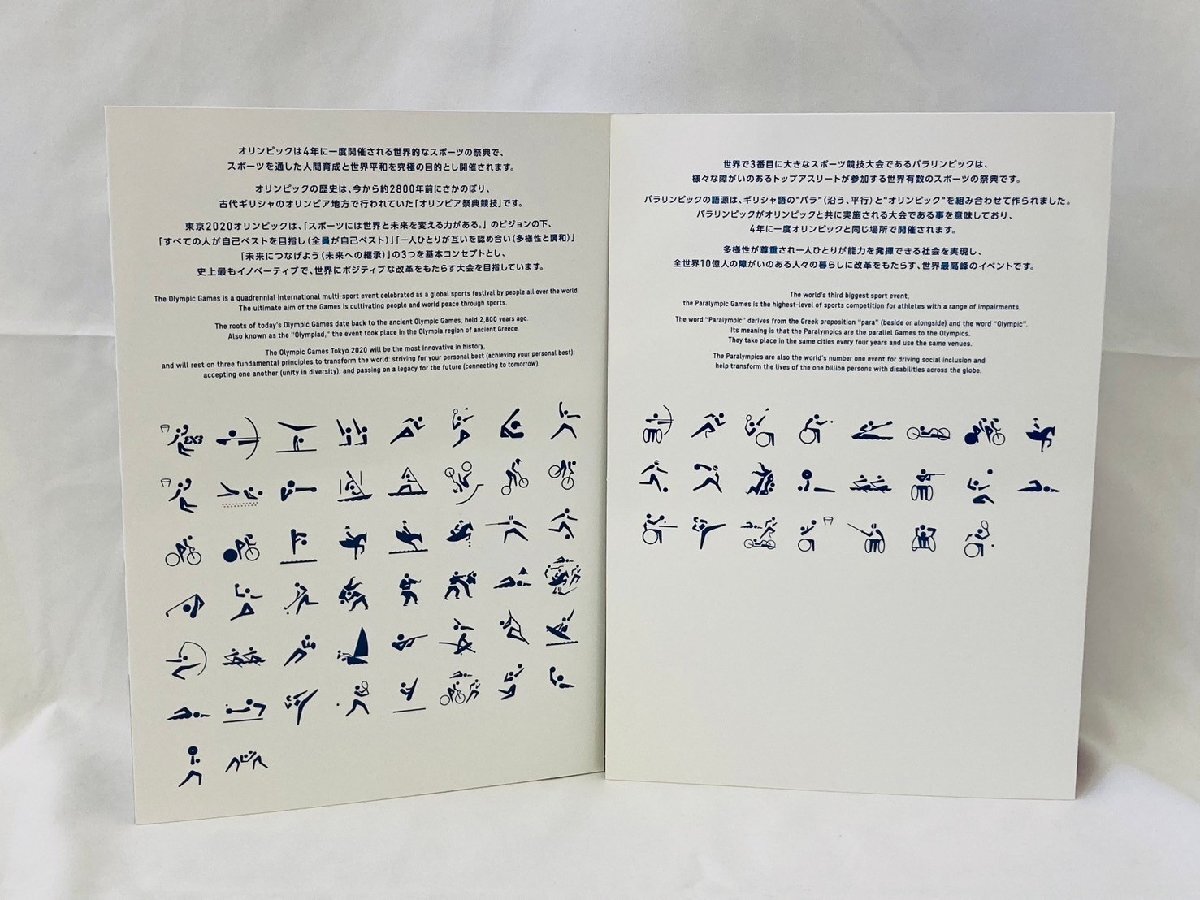 オリンピックは4年に一度開催される世界的なスポーツの祭典で、
スポーツを通した人間育成と世界平和を究極の目的とし開催されます。
オリンピックの歴史は、今から約2800年前にさかのぼり、
古代ギリシャのオリンピア地方で行われていた「オリンピア祭典競技」です。
東京2020オリンピックは、「スポーツには世界と未来を変える力がある。」のビジョンの下、
「すべての人が自己ベストを目指し(全員が自己ベスト)」「一人ひとりが互いを認め合い(多様性と調和)」
「未来につなげよう(未来への継承)」の3つを基本コンセプトとし、
史上最もイノベーティブで、世界にポジティブな改革をもたらす大会を目指しています。
The Olympic Games is a quadrennial international multi-sport event celebrated as a global sports festival by people all over the world.
The ultimate aim of the Games is cultivating people and world peace through sports.
The roots of today's Olympic Games date back to the ancient Olympic Games, held 2,800 years ago.
Also known as the "Olympiad," the event took place in the Olympia region of ancient Greece.
The Olympic Games Tokyo 2020 will be the most innovative in history,
and will rest on three fundamental principles to transform the world: striving for your personal best (achieving your personal best);
accepting one another (unity in diversity); and passing on a legacy for the future (connecting to tomorrow).
世界で3番目に大きなスポーツ競技大会であるパラリンピックは、
様々な障がいのあるトップアスリートが参加する世界有数のスポーツの祭典です。
パラリンピックの語源は、ギリシャ語の"パラ"(沿う、平行)と"オリンピック"を組み合わせて作られました。
パラリンピックがオリンピックと共に実施される大会である事を意味しており、
4年に一度オリンピックと同じ場所で開催されます。
多様性が尊重され一人ひとりが能力を発揮できる社会を実現し、
全世界10億人の障がいのある人々の暮らしに改革をもたらす、世界最高峰のイベントです。
The world's third biggest sport event,
the Paralympic Games is the highest-level of sports competition for athletes with a range of impairments.
The word "Paralympic" derives from the Greek preposition "para" (beside or alongside) and the word "Olympic".
Its meaning is that the Paralympics are the parallel Games to the Olympics.
They take place in the same cities every four years and use the same venues.
The Paralympics are also the world's number one event for driving social inclusion and
help transform the lives of the one billion persons with disabilities across the globe.